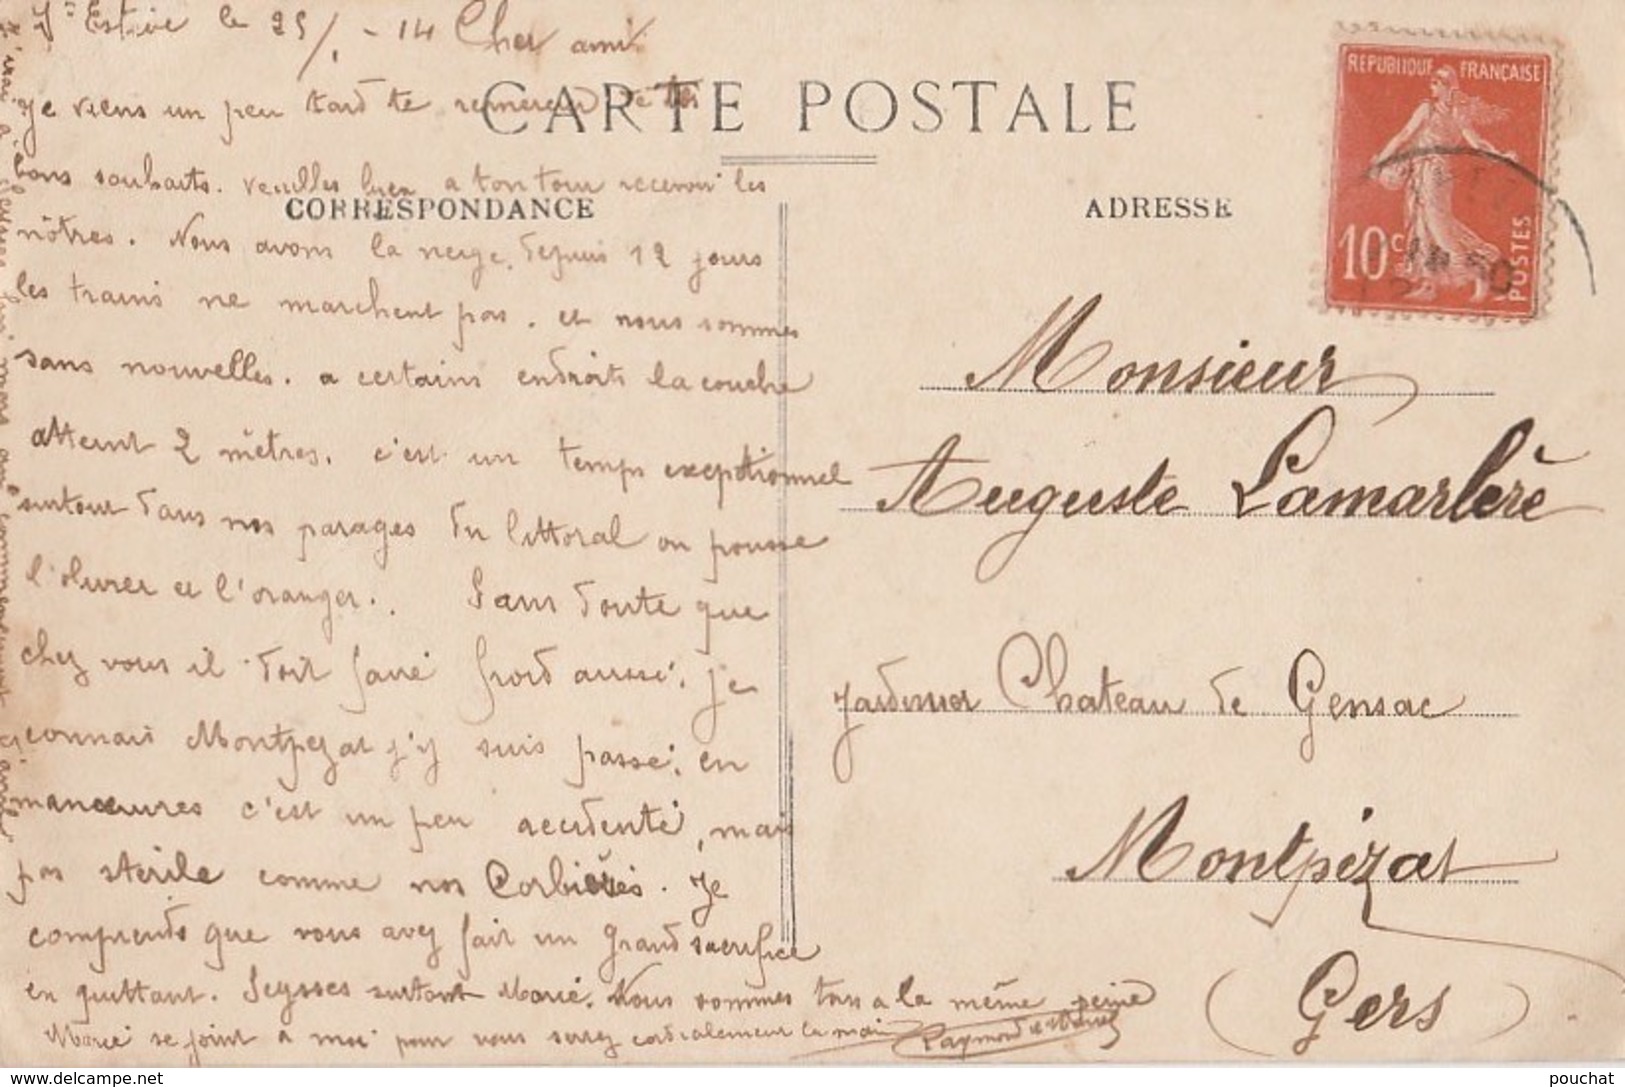 Jh Estève le 25/1 - 14 Cher ami
Je viens un peu tard te remercier de tes
bons souhaits. veuilles bien a ton tour recevoir les
nôtres. Nous avons la neige. Depuis 12 jours
les trains ne marchent pas. et nous sommes
sans nouvelles. a certains endroits la couche
atteint 2 mètres. c'est un temps exeptionnel
surtout dans nos parages du littoral ou pousse
l'olivier et l'oranger.. Sans doute que
chez vous il doit faire froid aussi. je
connais Montpezat j'y suis passé. en
manœuvres c'est un peu accidenté, mais
pas stérile comme nos Corbières. Je
comprends que vous avez fait un grand sacrifice
en quittant. Seysses surtout Marie. Nous sommes tous a la même peine
Marie se joint à moi pour vous serrer cordialement la main
Raymond
j'irai à Seysses au commencement
CARTE POSTALE
CORRESPONDANCE
ADRESSE
REPUBLIQUE FRANÇAISE
10 c
POSTES
Monsieur
Auguste Lamarlère
Jardinier Chateau de Gensac
Montpézat
(Gers)
delcampe.net
pouchat